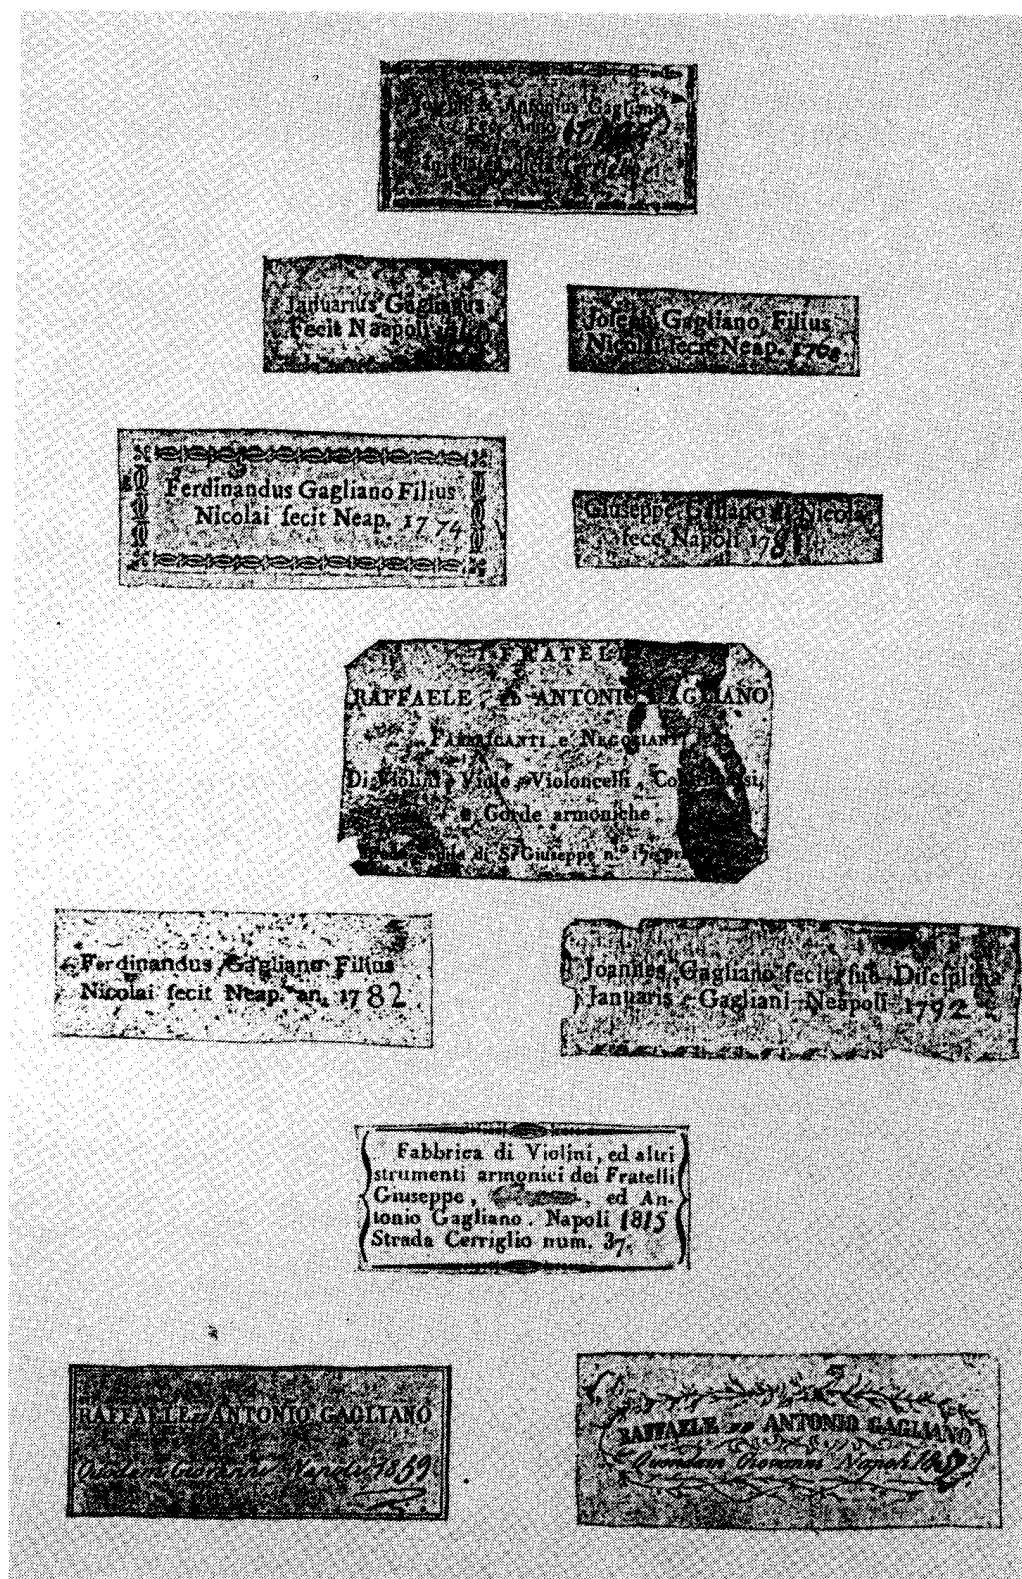 Joseph & Antonius Gagliano
Fec. Anno
Januarius Gaglianus
Fecit Neapoli
Joseph Gagliano Filius
Nicolai fecit Neap.
Ferdinandus Gagliano Filius
Nicolai fecit Neap. 1774
Giuseppe Gagliano di Nicola
fece Napoli 1781
FRATELLI
RAFFAELE, ED ANTONIO GAGLIANO
FABBRICANTI e NEGOZIANTI
Di Violini, Viole, Violoncelli,
e Corde armoniche
di S. Giuseppe n.º
Ferdinandus Gagliano Filius
Nicolai fecit Neap. an. 1782.
Joannes Gagliano fecit sub Disciplina
Januaris Gagliani Neapoli 1792
Fabbrica di Violini, ed altri
strumenti armonici dei Fratelli
Giuseppe, , ed An-
tonio Gagliano. Napoli 1815
Strada Cerriglio num. 37.
RAFFAELE ED ANTONIO GAGLIANO
Quodam Giovanni Napoli 1859
RAFFAELE ED ANTONIO GAGLIANO
Quondam Giovanni Napoli